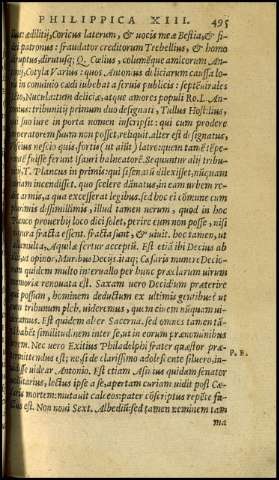 PHILIPPICA XIII. 495
ædilitij, Coricus laterum, & uocis meæ Bestia, & fi
patronus: fraudator creditorum Trebellius, & homo
diruptus, dirutusq; Q. Cælius, columéque amicorum An-
Cotyla Varius: quos Antonius deliciarum caussa lo-
in conuiuio cædi iubebat à seruis publicis: septéuirales
Nucula: tum deliciæ, atque amores populi Ro. L. An-
tribunitij primum duo designati, Tullus Hostilius,
suo iure in porta nomen inscripsit: qui cum prodere
imperatorem suum non posset, reliquit. alter est designatus,
nescio quis fortis (ut aiut) latro: quem tamé tépe-
fuisse ferunt Pisauri balneatoré. Sequuntur alij tribu-
T. Plancus in primis: qui si senatú dilexisset, núquam
incendisset. quo scelere dánatus, in eam urbem re-
armis, è qua excesserat legibus. sed hoc ei cómune cum
dissimillimis, illud tamen uerum, quod in hoc
prouerbij loco dici solet, perire eum non posse, nisi
crura fracta essent. fracta sunt, & uiuit. hoc tamen, ut
multa, Aquilæ fertur acceptú. Est etiá ibi Decius ab
ut opinor, Muribus Decijs. itaq; Cæsaris munera
quidem multo interuallo per hunc præclarum uirum
memoria renouata est. Saxam uero Decidium præterire
possum, hominem deductum ex ultimis gentibus ut
tribunum pleb. uideremus, quem ciuem núquam ui-
Est quidem alter Saserna. sed omnes tamen tá-
habét similitud.nem inter se, ut in eorum prænominibus
Nec uero Exitius Philadelphi frater quæstor præ-
mittendus est; ne, si de clarissimo adolescente siluero, in-
uidisse uidear Antonio. Est etiam Asinius quidam senator
uoluntarius, lectus ipse à se. apertam curiam uidit post Cæ-
mortem: mutauit calceos: pater cóscriptus repéte fa-
est. Non noui Sext. Albediú. sed tamen neminem tam
P. E.
ma